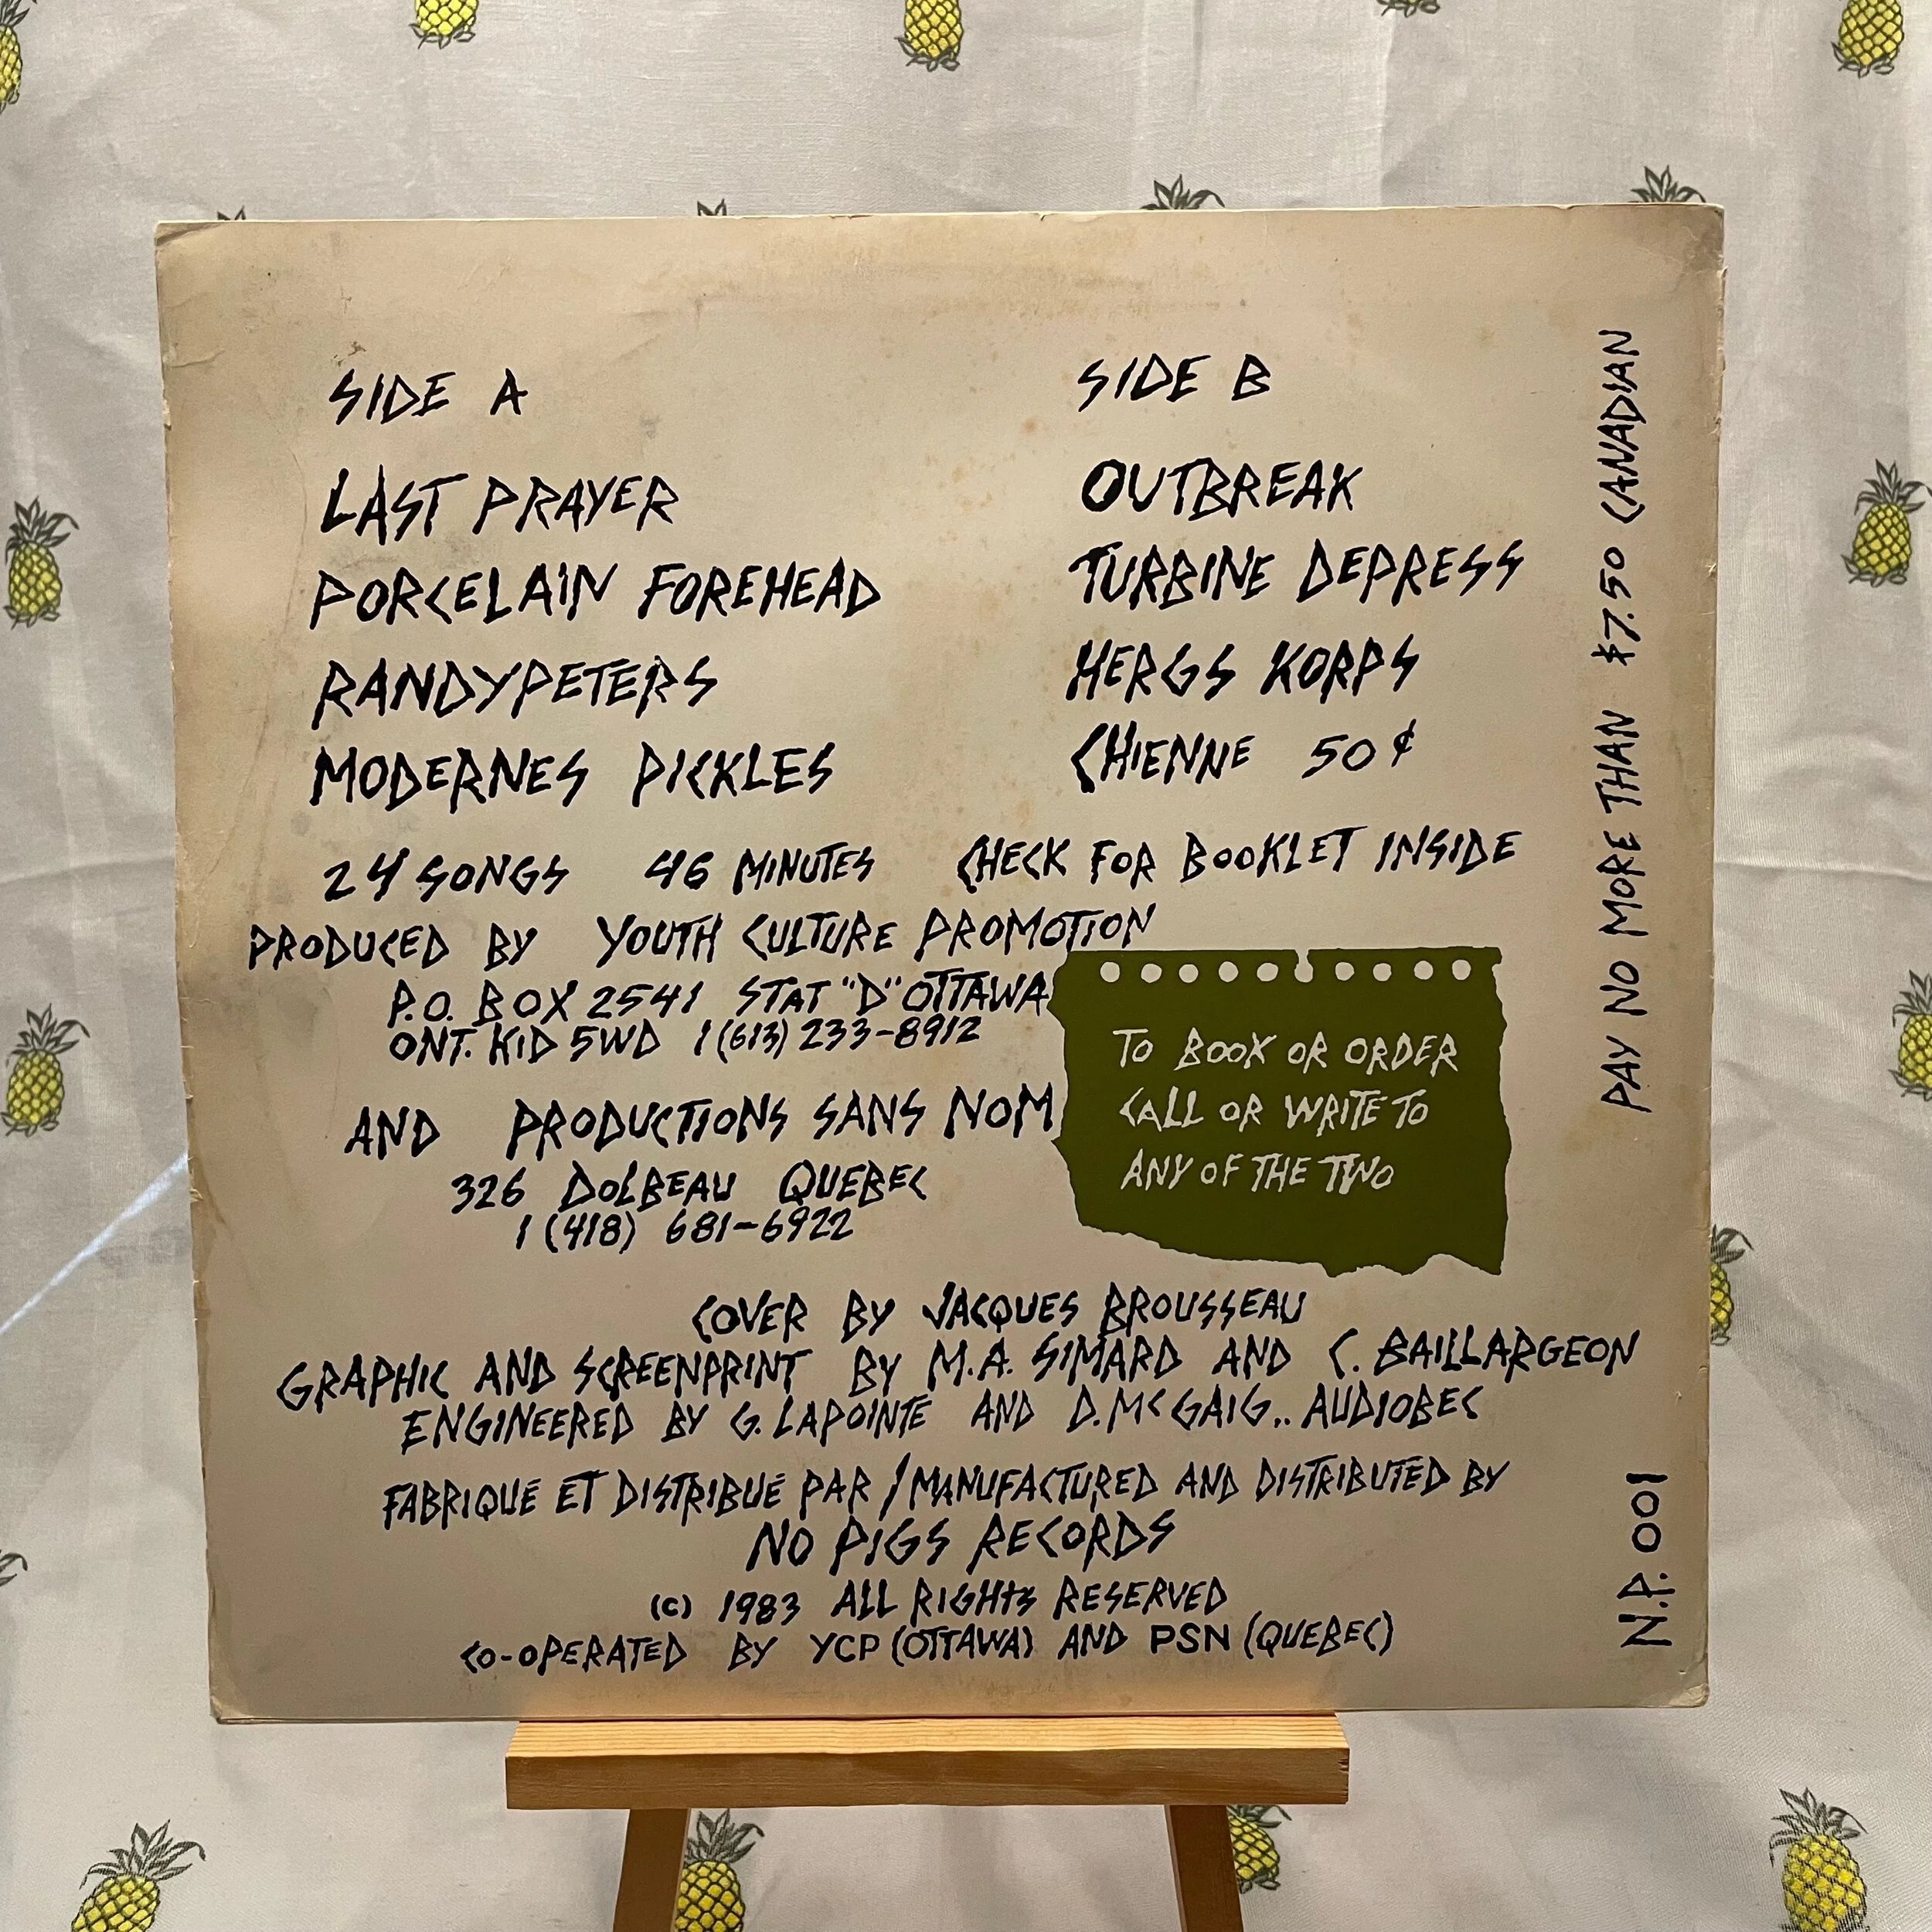 SIDE A
LAST PRAYER
PORCELAIN FOREHEAD
RANDYPETERS
MODERNES PICKLES
SIDE B
OUTBREAK
TURBINE DEPRESS
HERGS KORPS
CHIENNE 50¢
24 SONGS 46 MINUTES CHECK FOR BOOKLET INSIDE
PRODUCED BY YOUTH CULTURE PROMOTION
P.O. BOX 2541 STAT "D" OTTAWA
ONT. K1D 5WD 1 (613) 233-8912
AND PRODUCTIONS SANS NOM
326 DOLBEAU QUEBEC
1 (418) 681-6922
TO BOOK OR ORDER
CALL OR WRITE TO
ANY OF THE TWO
COVER BY JACQUES BROUSSEAU
GRAPHIC AND SCREENPRINT BY M.A. SIMARD AND C. BAILLARGEON
ENGINEERED BY G. LAPOINTE AND D. MCGAIG.. AUDIOBEC
FABRIQUÉ ET DISTRIBUÉ PAR / MANUFACTURED AND DISTRIBUTED BY
NO PIGS RECORDS
(C) 1983 ALL RIGHTS RESERVED
CO-OPERATED BY YCP (OTTAWA) AND PSN (QUEBEC)
PAY NO MORE THAN $7.50 CANADIAN
N.P. 001